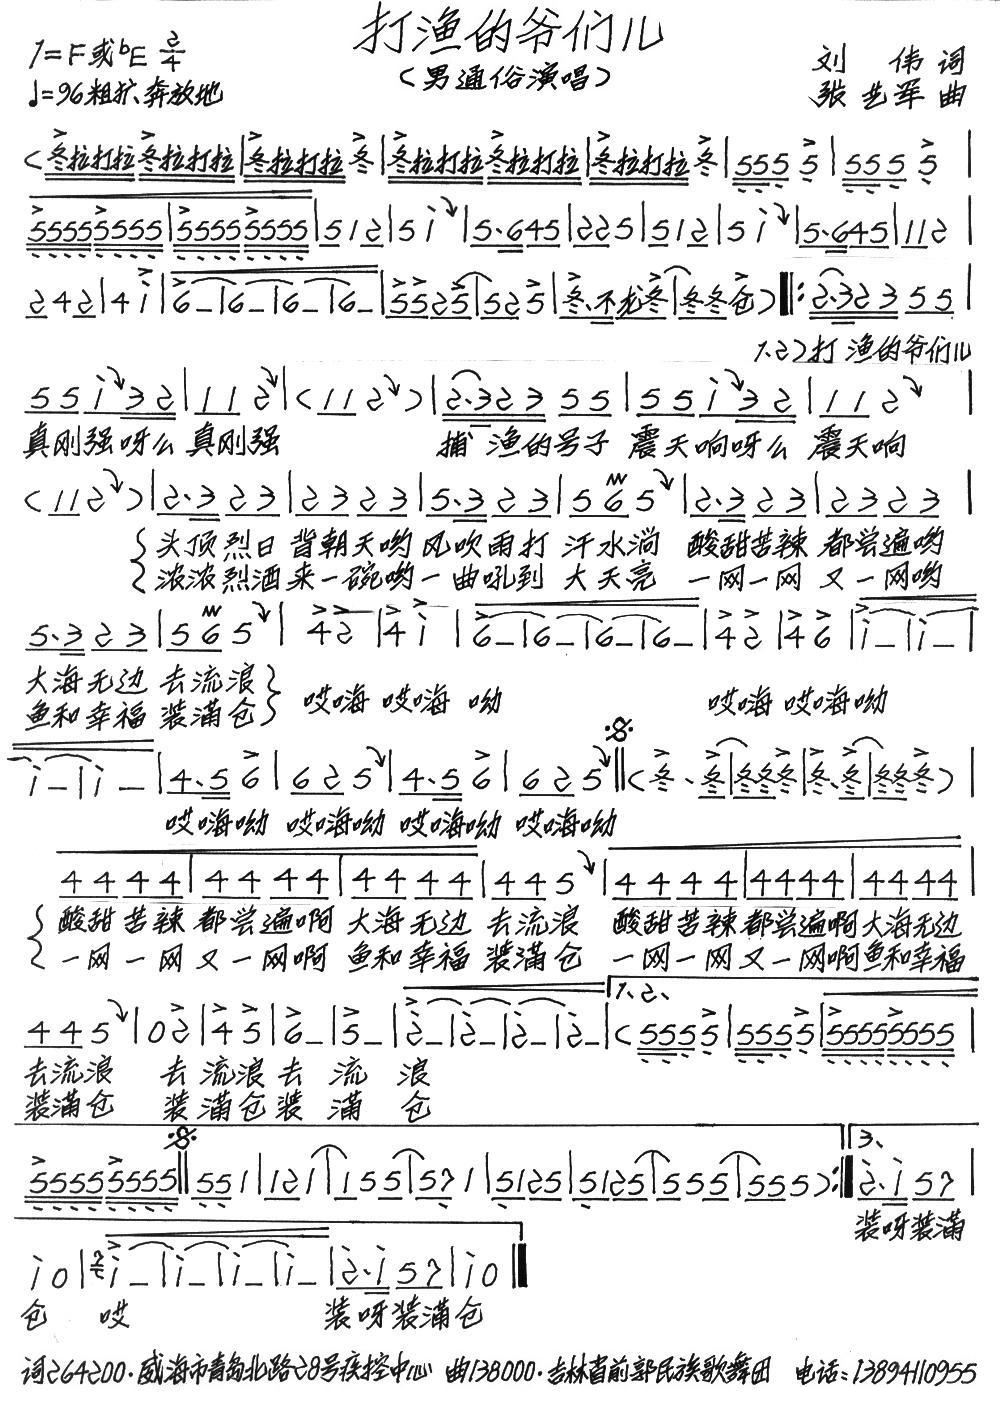 打渔的爷们儿
1=F或bE 2/4
(男通俗演唱)
刘 伟 词
♩=96粗犷、奔放地
张艺军 曲
(冬拉打拉 冬拉打拉|冬拉打拉 冬|冬拉打拉 冬拉打拉|冬拉打拉 冬|555 5|555 5|
5555 5555|5555 5555|512|5i|5·645|225|512|5i|5·645|112|
242|4i|6–|6–|6–|6–|5525|525|冬·不龙冬|冬冬仓)‖:2·323 55|
1、2、打 渔的爷们儿
55 i32|112|(112)|2·323 55|55 i32|112|
真刚强呀么 真刚强 捕 渔的号子 震天响呀么 震天响
(112)|2·3 23|23 23|5·3 23|565|2·3 23|23 23|
头顶烈日 背朝天哟 风吹雨打 汗水淌 酸甜苦辣 都尝遍哟
浓浓烈酒 来一碗哟 一曲吼到 大天亮 一网一网 又一网哟
5·3 23|565|42|4i|6–|6–|6–|6–|42|46|i–|i–|
大海无边 去流浪 哎嗨 哎嗨 呦 哎嗨 哎嗨呦
鱼和幸福 装满仓
i–|i–|4·5 6|625|4·5 6|625‖(冬·冬|冬冬冬|冬·冬|冬冬冬)|
哎嗨呦 哎嗨呦 哎嗨呦 哎嗨呦
44 44|44 44|44 44|445|44 44|4444|4444|
酸甜 苦辣 都尝遍啊 大海无边 去流浪 酸甜苦辣都尝遍啊大海无边
一网 一网 又一网啊 鱼和幸福 装满仓 一网一网又一网啊鱼和幸福
1、2、
445|02|45|6–|5–|2–|2–|2–|2–|(5555|5555|55555555|
去流浪 去 流浪 去 流 浪
装满仓 装 满仓 装 满 仓
3、
5555 5555‖551|121|155|571|5125|5125|555|555):‖2·i 57|
装呀装满
i0|i–|i–|i–|i–|2·i 57|i0‖
仓 哎 装呀装满仓
词264200·威海市青岛北路28号疾控中心 曲138000·吉林省前郭民族歌舞团 电话:13894110955